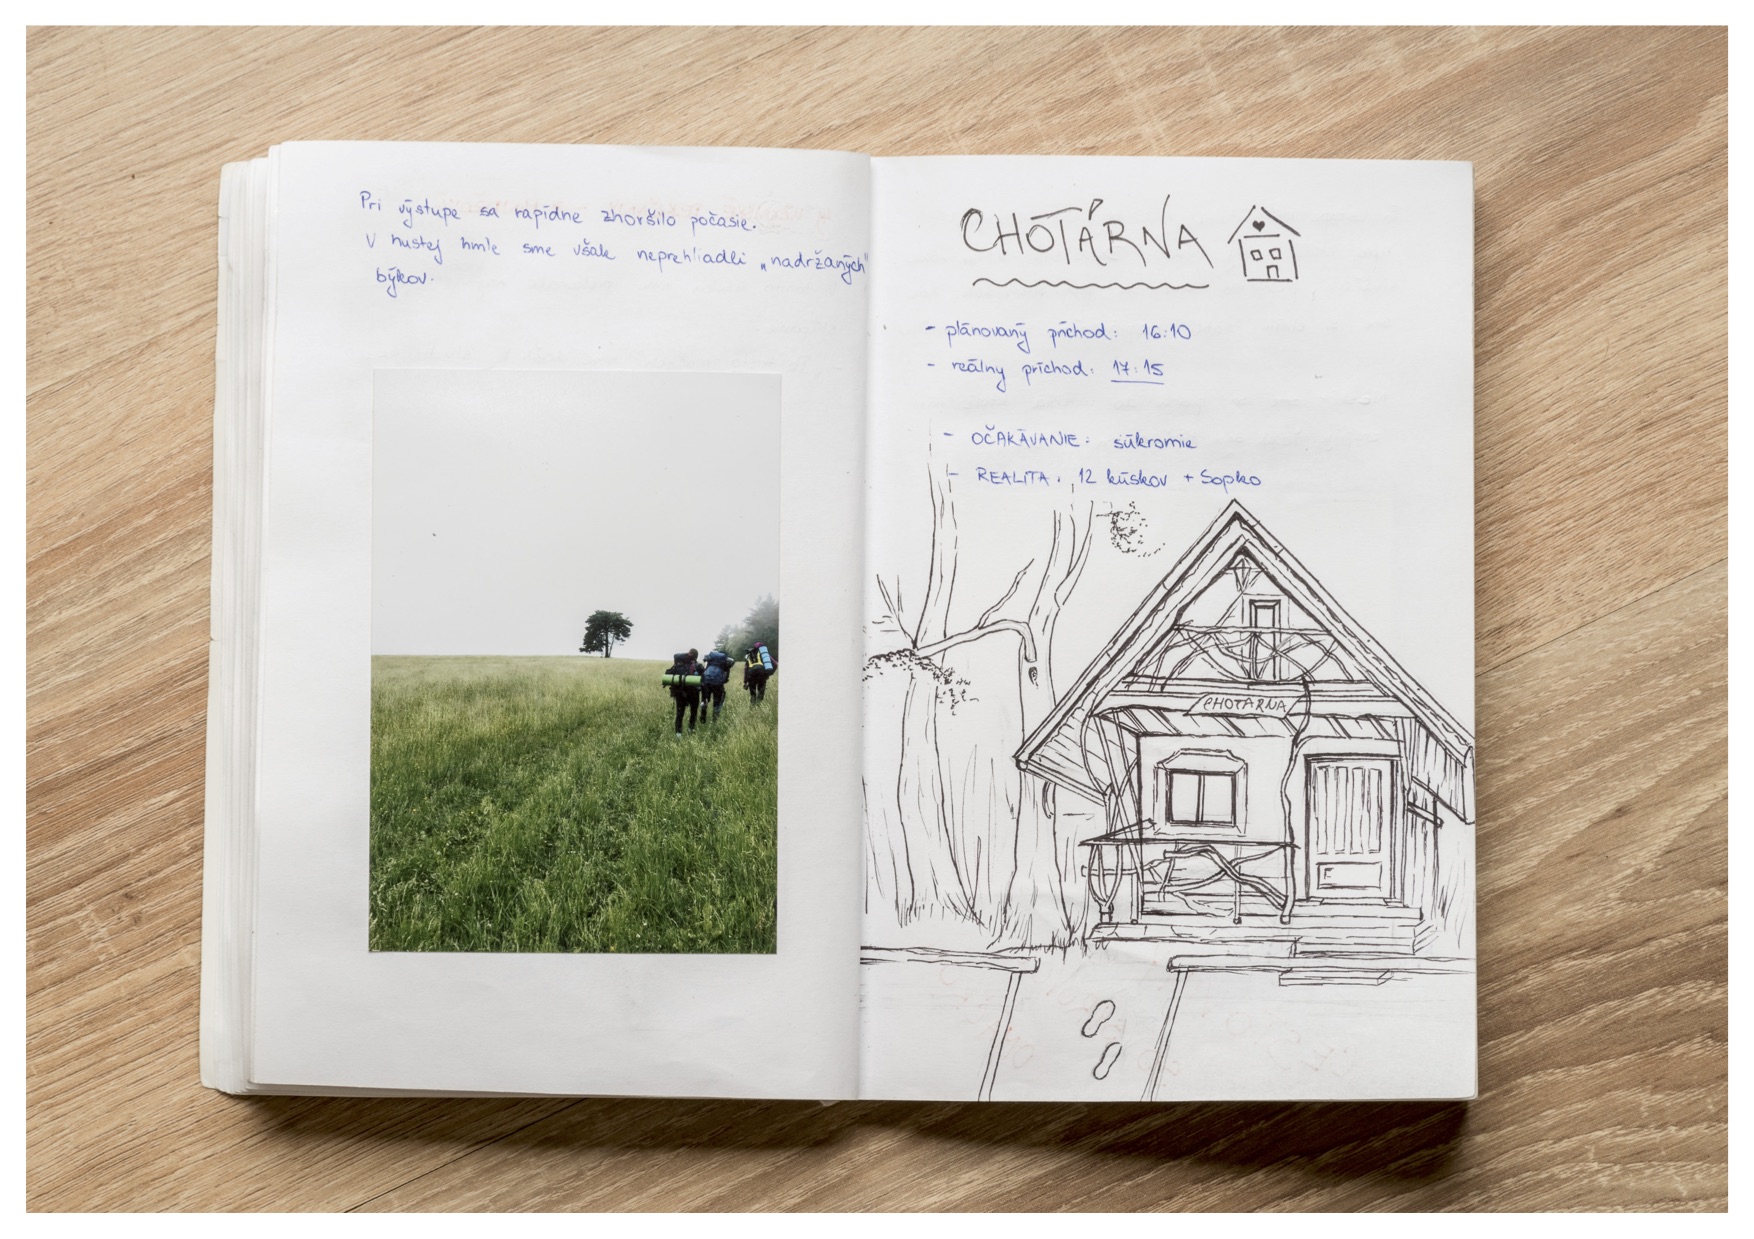 Pri výstupe sa rapídne zhoršilo počasie.
V hustej hmle sme však neprehliadli „nadržaných"
býkov.
CHOTÁRNA
- plánovaný príchod: 16:10
- reálny príchod: 17:15
- OČAKÁVANIE: súkromie
- REALITA: 12 kúskov + Sopko
CHOTÁRNA